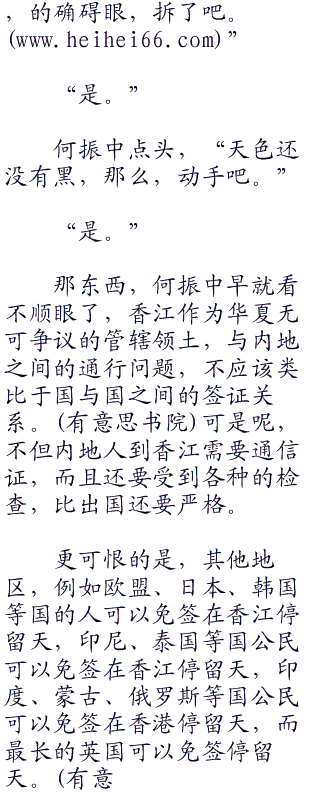 ，的确碍眼，拆了吧。
(www.heihei66.com)”
“是。”
何振中点头，“天色还
没有黑，那么，动手吧。”
“是。”
那东西，何振中早就看
不顺眼了，香江作为华夏无
可争议的管辖领土，与内地
之间的通行问题，不应该类
比于国与国之间的签证关
系。(有意思书院)可是呢，
不但内地人到香江需要通信
证，而且还要受到各种的检
查，比出国还要严格。
更可恨的是，其他地
区，例如欧盟、日本、韩国
等国的人可以免签在香江停
留天，印尼、泰国等国公民
可以免签在香江停留天，印
度、蒙古、俄罗斯等国公民
可以免签在香港停留天，而
最长的英国可以免签停留
天。(有意